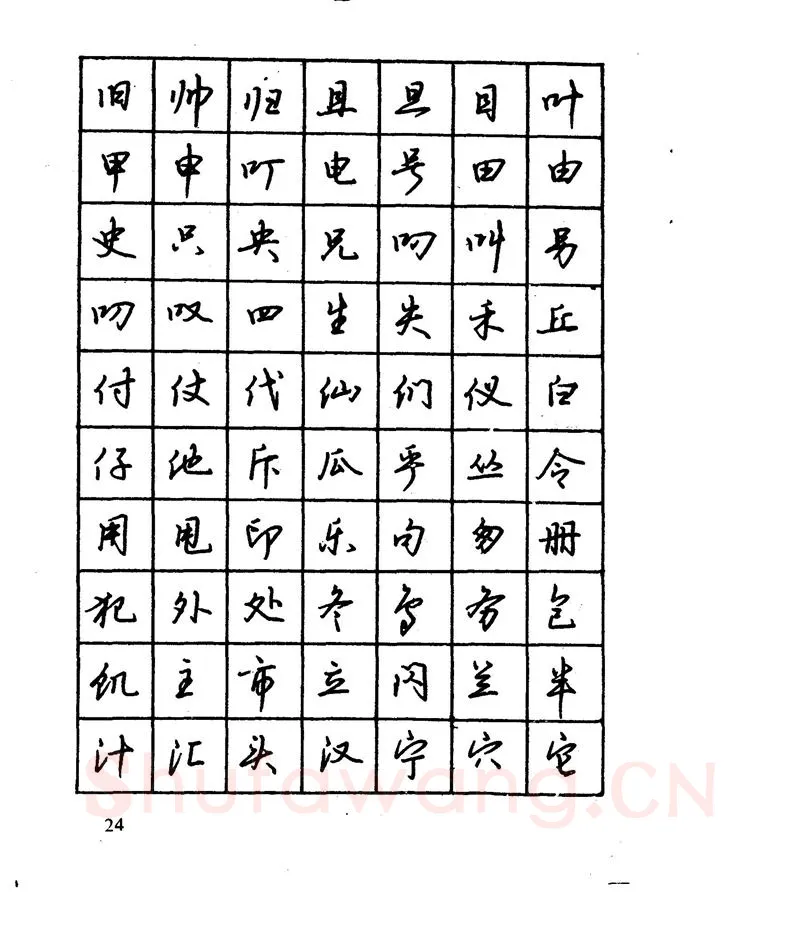 旧 帅 归 且 旦 目 叶
甲 申 叮 电 号 田 由
史 只 央 兄 叼 叫 另
叨 叹 四 生 失 禾 丘
付 仗 代 仙 们 仪 白
仔 他 斥 瓜 乎 丛 令
用 甩 印 乐 句 匆 册
犯 外 处 冬 鸟 务 包
饥 主 市 立 闪 兰 半
汁 汇 头 汉 宁 穴 它
Shufawang.CN
24